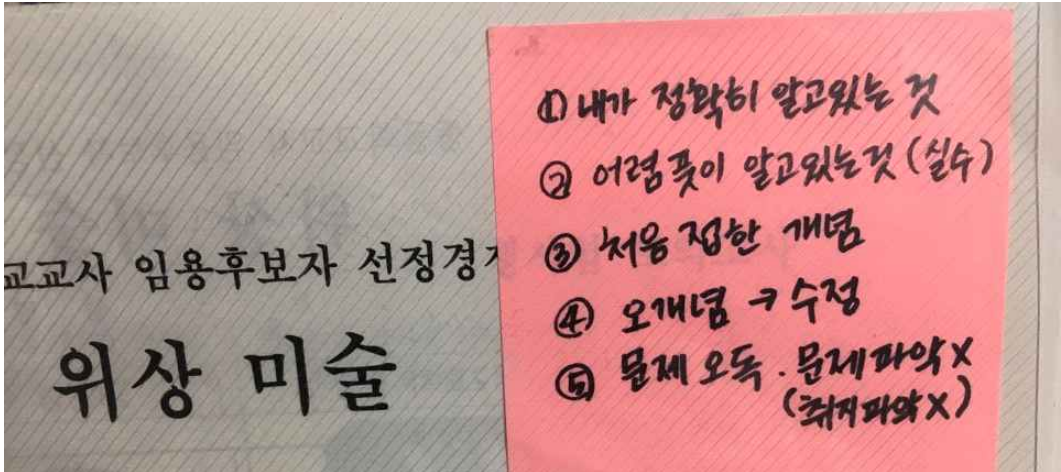 교교사 임용후보자 선정경
위상 미술
① 내가 정확히 알고있는 것
② 어렴풋이 알고있는것 (실수)
③ 처음 접한 개념
④ 오개념 → 수정
⑤ 문제 오독 . 문제파악 X
(취지파악 X)